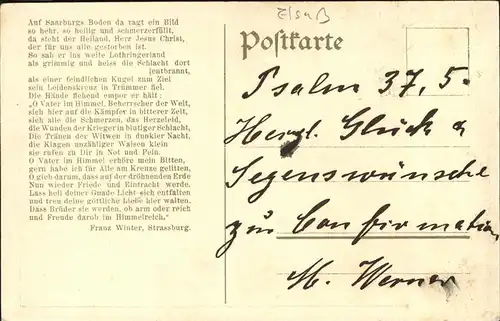 Auf Saarburgs Boden da ragt ein Bild
so hehr, so heilig und schmerzerfüllt,
da steht der Heiland, Herr Jesus Christ,
der für uns alle gestorben ist.
So sah er ins weite Lothringerland
als grimmig und heiss die Schlacht dort
[entbrannt,
als einer feindlichen Kugel zum Ziel
sein Leidenskreuz in Trümmer fiel.
Die Hände flehend empor er hält:
„O Vater im Himmel, Beherrscher der Welt,
sieh hier auf die Kämpfer in bitterer Zeit,
sieh alle die Schmerzen, das Herzeleid,
die Wunden der Krieger in blutiger Schlacht,
Die Tränen der Witwen in dunkler Nacht,
die Klagen unzähliger Waisen klein
sie rufen zu Dir in Not und Pein.
O Vater im Himmel erhöre mein Bitten,
gern habe ich für Alle am Kreuze gelitten,
O gieb darum, dass auf der dröhnenden Erde
Nun wieder Friede und Eintracht werde.
Lass hell deiner Gnade Licht sich entfalten
und treu deine göttliche Liebe hier walten.
Dass Brüder sie werden, ob arm oder reich
und Freude darob im Himmelreich.“
Franz Winter, Strassburg.
Elsaß
Postkarte
Psalm 37, 5.
Herzl. Glück &
Segenswünsche
zur Confirmation
M. Werner